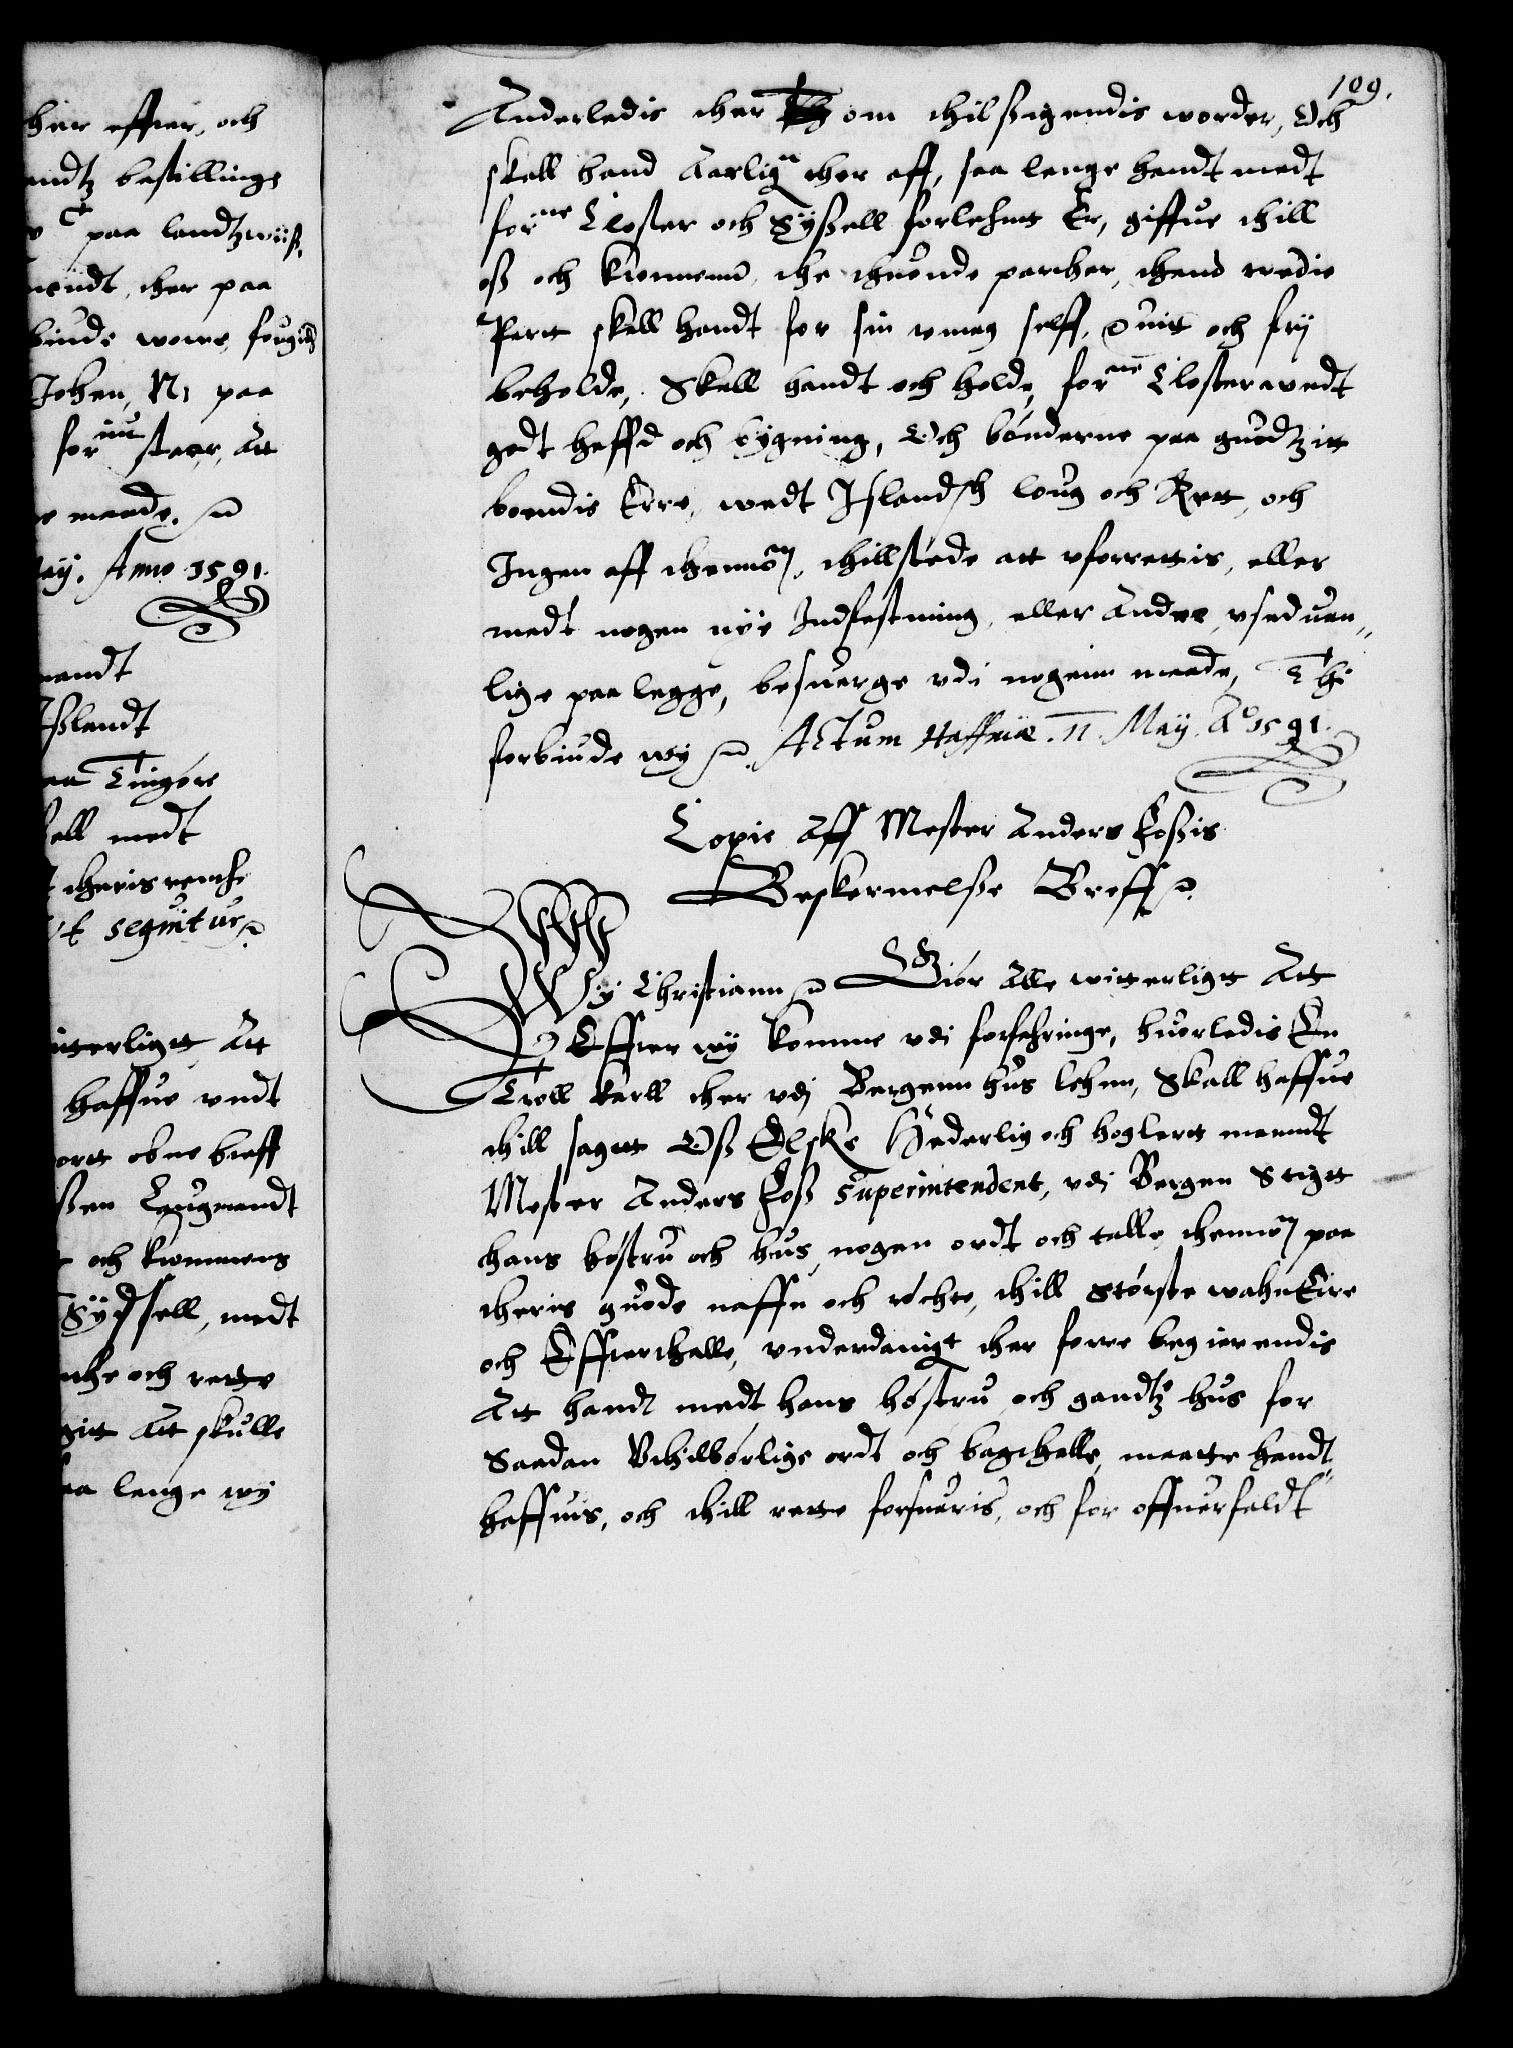 her effter, och
andtz bestillings
paa landtzwiis.
wendt, ther paa
biude wore fougith
Johan, N, paa
for:ne staar, Att
e maade. etc
May. Anno 1591.
mandt
Ißlandt
aa Tingøre
ell medt
t theris renthe
Vt seguitur etc
itterligtt Att
haffue vndt
ortt obne breff
ßen Laugmandt
och kronnens
Sydsell, medt
nthe och rette
gitt Att skulle
aa lenge wy
109.
Anderledis ther om thilßigendis worder, Och
skall hand Aarlig:n ther aff, saa lenge handt medt
for:ne Closter och Sysßell forlehntt Er, giffue thill
oß och kronnenn, the thuende parther, thend tredie
Partt skall handt for sin wmag selff, quitt och frij
beholde, Skall handt och holde, for:ne Closter wedt
godt heffd och bygning, Och bønderne paa guodtzitt
boendis Erre, wedt Islandsk loug och Rett, och
Ingen aff thennom, thillstede att vforrettis, eller
medt nogen nye Indfestning, eller Anden, vseduen„
lige paa legge, besuerge vdi nogenn maade, Thi
forbiude wy etc. Actum Haffniæ. 11. May. Ao 1591.
Copie Aff Mester Anders Foßis
Beskermelße Breff etc
Wy Christiann etc Giør Alle witterligtt Att
Effter wy komme vdi forfahringe, huorledis En
Troll karll ther vdi Bergenn hus lehnn, Skall haffue
thill sagtt Oß Elske Hæderlig och høglertt manndt
Mester Anders Foß Superintendent, vdi Bergen Stigtt
hans høstru och hus, nogen ordt och talle, thennom paa
theris guode naffn och røchte, thill Største wahnErre
och Effterthalle, vnderdanigt ther forre begierendis
Att handt medt hans høstru och gandtze hus for
Saadan Vthilbørlige ordt och bagthalle, maatte handt„
haffuis, och thill rette forsuaris, och for offuerfaldt